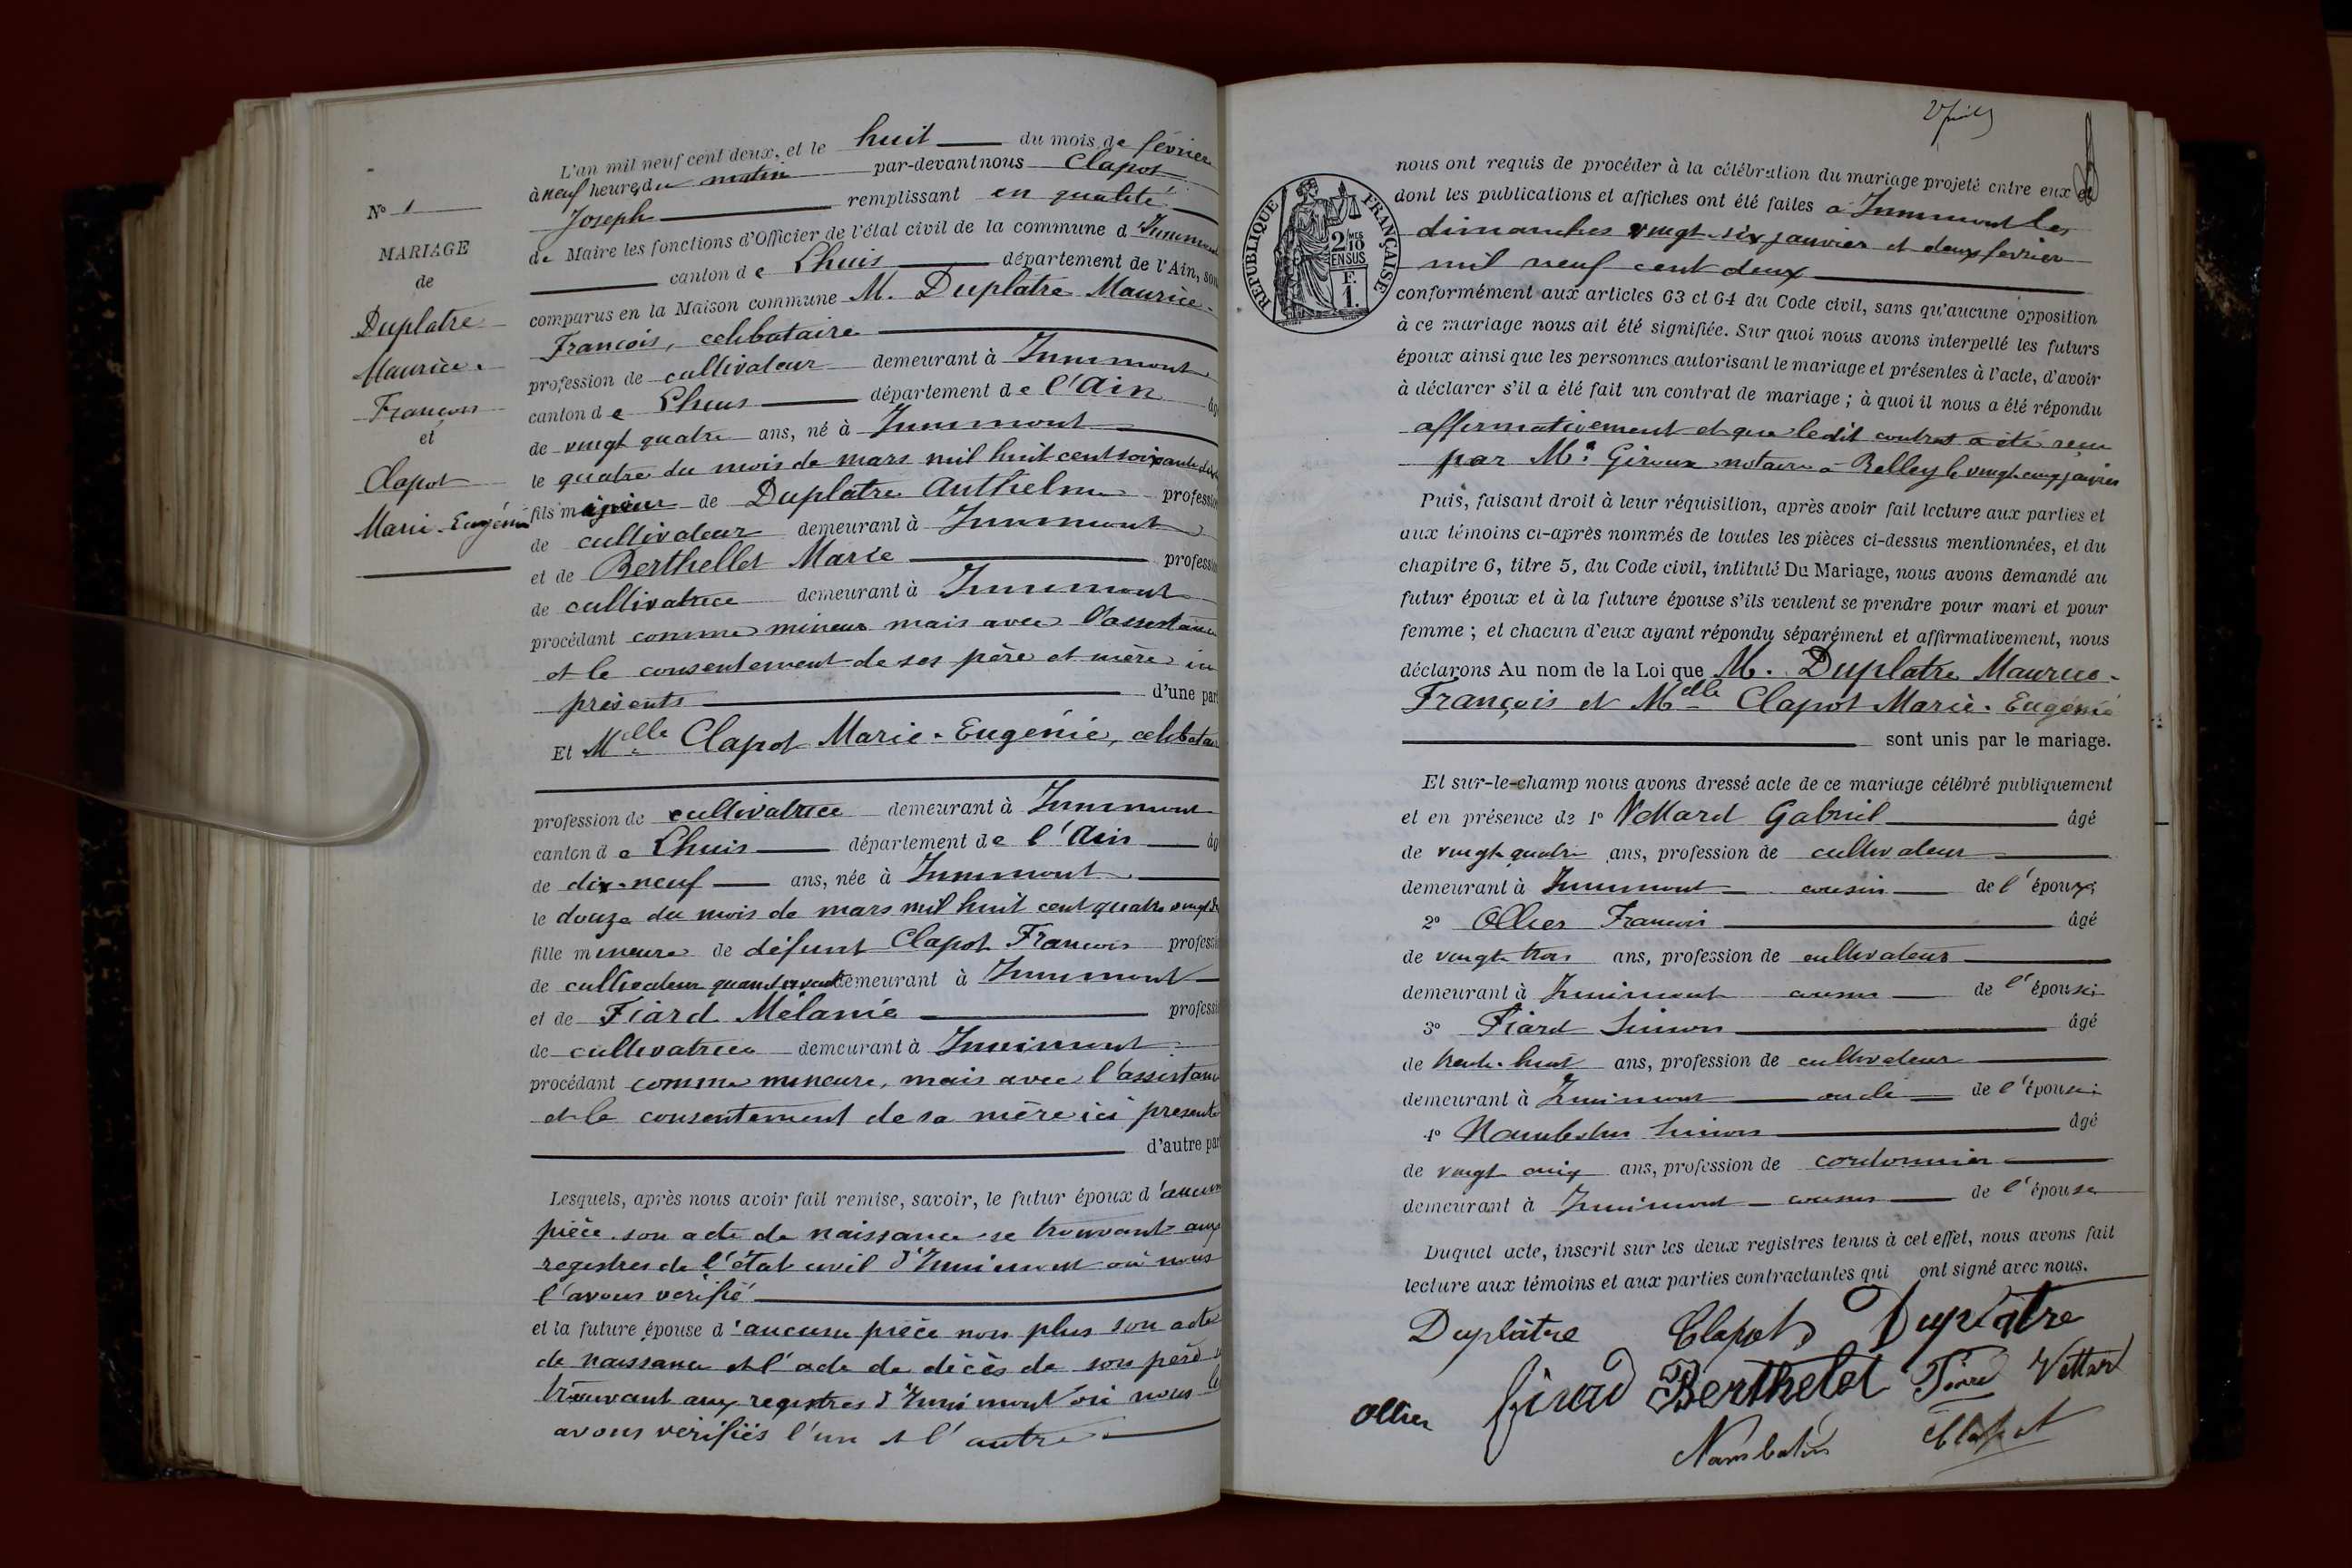 L'an mil neuf cent deux, et le huit du mois de février
à neuf heures du matin par-devant nous Clapot
Joseph remplissant en qualité
de Maire les fonctions d'Officier de l'état civil de la commune d'Innimont
canton de Lhuis département de l'Ain, son
comparus en la Maison commune M. Duplatre Maurice-
François, célibataire
profession de cultivateur demeurant à Innimont
canton de Lhuis département de l'Ain âg
de vingt quatre ans, né à Innimont
le quatre du mois de mars mil huit cent soixante dix
fils majeur de Duplatre Anthelme profession
de cultivateur demeurant à Innimont
et de Berthellet Marie profession
de cultivatrice demeurant à Innimont
procédant comme mineur mais avec l'assistance
et le consentement de ses père et mère ici
présents d'une part
Et Melle Clapot Marie-Eugénie, célibatai
profession de cultivatrice demeurant à Innimont
canton de Lhuis département de l'Ain âg
de dix-neuf ans, née à Innimont
le douze du mois de mars mil huit cent quatre vingt d
fille mineure de défunt Clapot François profession
de cultivateur quand vivant demeurant à Innimont
et de Fiard Mélanie professi
de cultivatrice demeurant à Innimont
procédant comme mineure, mais avec l'assistance
et le consentement de sa mère ici présente
d'autre par
Lesquels, après nous avoir fait remise, savoir, le futur époux d'aucune
pièce son acte de naissance se trouvant aux
registres de l'état civil d'Innimont où nous
l'avons vérifié
et la future épouse d'aucune pièce non plus son acte
de naissance et l'acte de décès de son père s
trouvant aux registres d'Innimont où nous les
avons vérifiés l'un et l'autre
N° 1
MARIAGE
de
Duplatre
Maurice-
François
et
Clapot
Marie-Eugénie
REPUBLIQUE FRANÇAISE
2/10MES
EN SUS
F.
1.
nous ont requis de procéder à la célébration du mariage projeté entre eux et
dont les publications et affiches ont été faites à Innimont les
dimanches vingt-six janvier et deux février
mil neuf cent deux
conformément aux articles 63 et 64 du Code civil, sans qu'aucune opposition
à ce mariage nous ait été signifiée. Sur quoi nous avons interpellé les futurs
époux ainsi que les personnes autorisant le mariage et présentes à l'acte, d'avoir
à déclarer s'il a été fait un contrat de mariage ; à quoi il nous a été répondu
affirmativement et que ledit contrat a été reçu
par Me Giroux notaire à Belley le vingt cinq janvier
Puis, faisant droit à leur réquisition, après avoir fait lecture aux parties et
aux témoins ci-après nommés de toutes les pièces ci-dessus mentionnées, et du
chapitre 6, titre 5, du Code civil, intitulé Du Mariage, nous avons demandé au
futur époux et à la future épouse s'ils veulent se prendre pour mari et pour
femme ; et chacun d'eux ayant répondu séparément et affirmativement, nous
déclarons Au nom de la Loi que M. Duplatre Maurice-
François et Melle Clapot Marie-Eugénie
sont unis par le mariage.
Et sur-le-champ nous avons dressé acte de ce mariage célébré publiquement
et en présence de 1° Vettard Gabriel âgé
de vingt quatre ans, profession de cultivateur
demeurant à Innimont cousin de l'époux;
2° Ollier François âgé
de vingt-trois ans, profession de cultivateur
demeurant à Innimont cousin de l'épouse;
3° Fiard Simon âgé
de trente-huit ans, profession de cultivateur
demeurant à Innimont oncle de l'épouse;
4° Nambotin Simon âgé
de vingt ans, profession de cordonnier
demeurant à Innimont cousin de l'épouse
Duquel acte, inscrit sur les deux registres tenus à cet effet, nous avons fait
lecture aux témoins et aux parties contractantes qui ont signé avec nous.
Duplâtre Clapot Duplatre
Ollier Berthelet Fiard Vettard
Nambotin Clapot